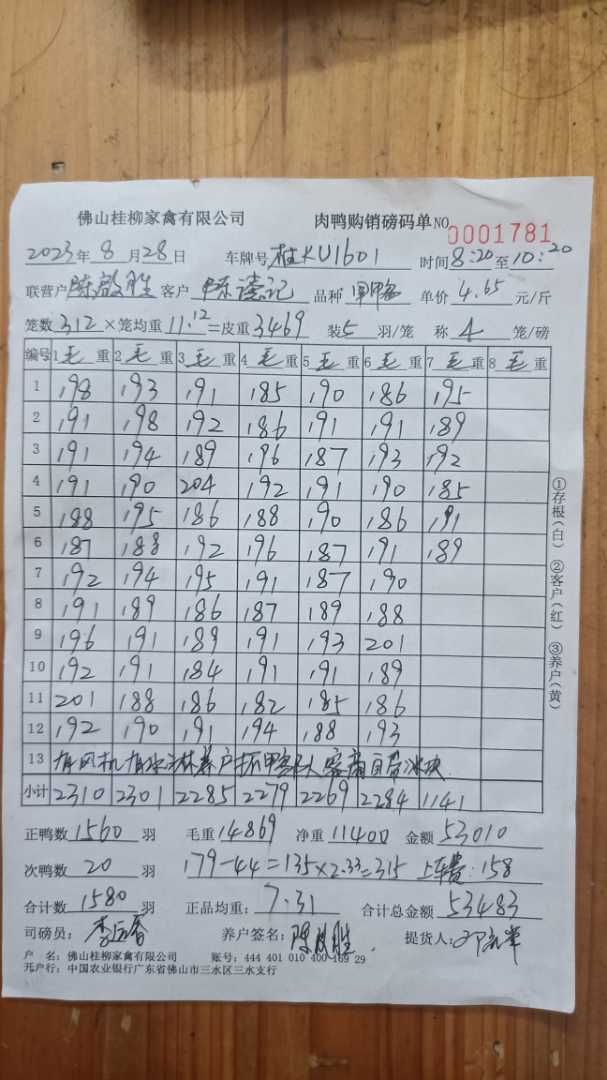 佛山桂柳家禽有限公司 肉鸭购销磅码单 NO 0001781
2023年 8 月 28 日 车牌号 桂KU1601 时间 8:20 至 10:20
联营户 陈啟胜 客户 品种 单价 4.65 元/斤
笼数 312 ×笼均重 11.12 =皮重 3469 装 5 羽/笼 称 4 笼/磅
编号 1 毛 重 2 毛 重 3 毛 重 4 毛 重 5 毛 重 6 毛 重 7 毛 重 8 毛 重
1 198 193 191 185 190 186 195
2 191 198 192 186 191 191 189
3 191 194 189 196 187 193 192
4 191 190 204 192 191 190 185
5 188 195 186 188 190 186 191
6 187 188 192 196 187 191 189
7 192 194 195 191 187 190
8 191 189 186 187 189 188
9 196 191 189 191 193 201
10 192 191 184 191 191 189
11 201 188 186 182 185 186
12 192 190 191 194 188 193
13 有风机有水淋养户抓鸭 客商自带冰块
小计 2310 2301 2285 2279 2269 2284 1141
正鸭数 1560 羽 毛重 14869 净重 11400 金额 53010
次鸭数 20 羽 179-44=135×2.33=315 上车费:158
合计数 1580 羽 正品均重: 7.31 合计总金额 53483
司磅员: 养户签名: 提货人:
户 名: 佛山桂柳家禽有限公司 账号: 444 401 010 400 169 29
开户行: 中国农业银行广东省佛山市三水区三水支行
①存根(白) ②客户(红) ③养户(黄)